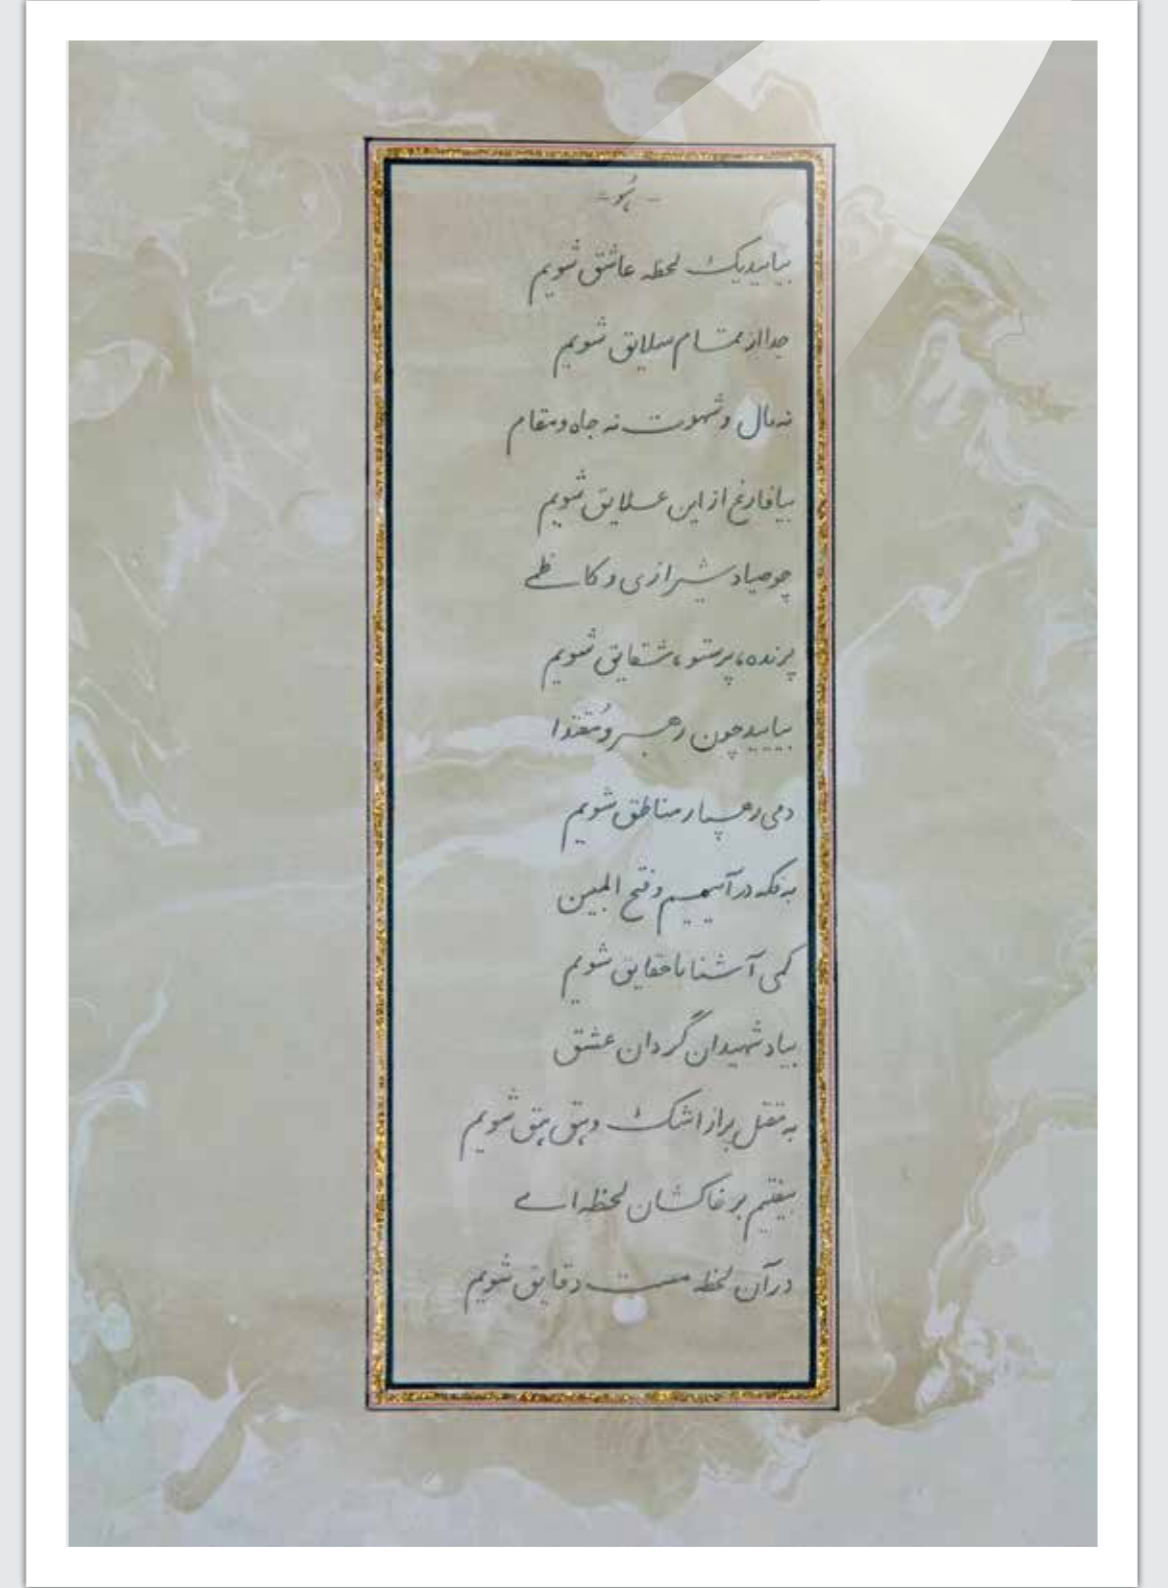 هُو
بیایید یک لحظه عاشق شویم
جدا از تمام سلایق شویم
نه مال و شهوت نه جاه و مقام
بیا فارغ از این علایق شویم
چو صیاد شیرازی و کاظمی
پرنده، پرستو، شقایق شویم
بیایید چون رهبر و مُقتدا
دمی رهسپار مناطق شویم
به فکه درآییم و فتح المبین
کمی آشنا با حقایق شویم
بیاد شهیدان گردان عشق
به مقتل پر از اشک و هق هق شویم
بیفتیم بر خاکشان لحظه‌ای
در آن لحظه مست دقایق شویم